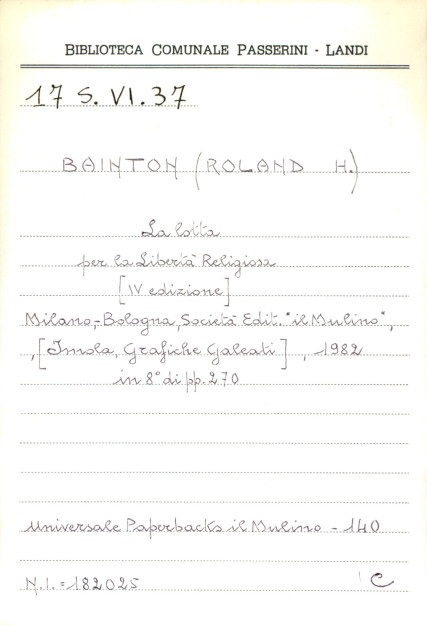 BIBLIOTECA COMUNALE PASSERINI - LANDI
17 S. VI. 37
BAINTON (ROLAND H.)
La lotta
per la Libertà Religiosa
[IV edizione]
Milano,-Bologna, Società Edit. "il Mulino",
,[Imola, Grafiche Galeati], 1982
in 8° di pp. 270
Universale Paperbacks il Mulino - 140
N.I. = 182025
C